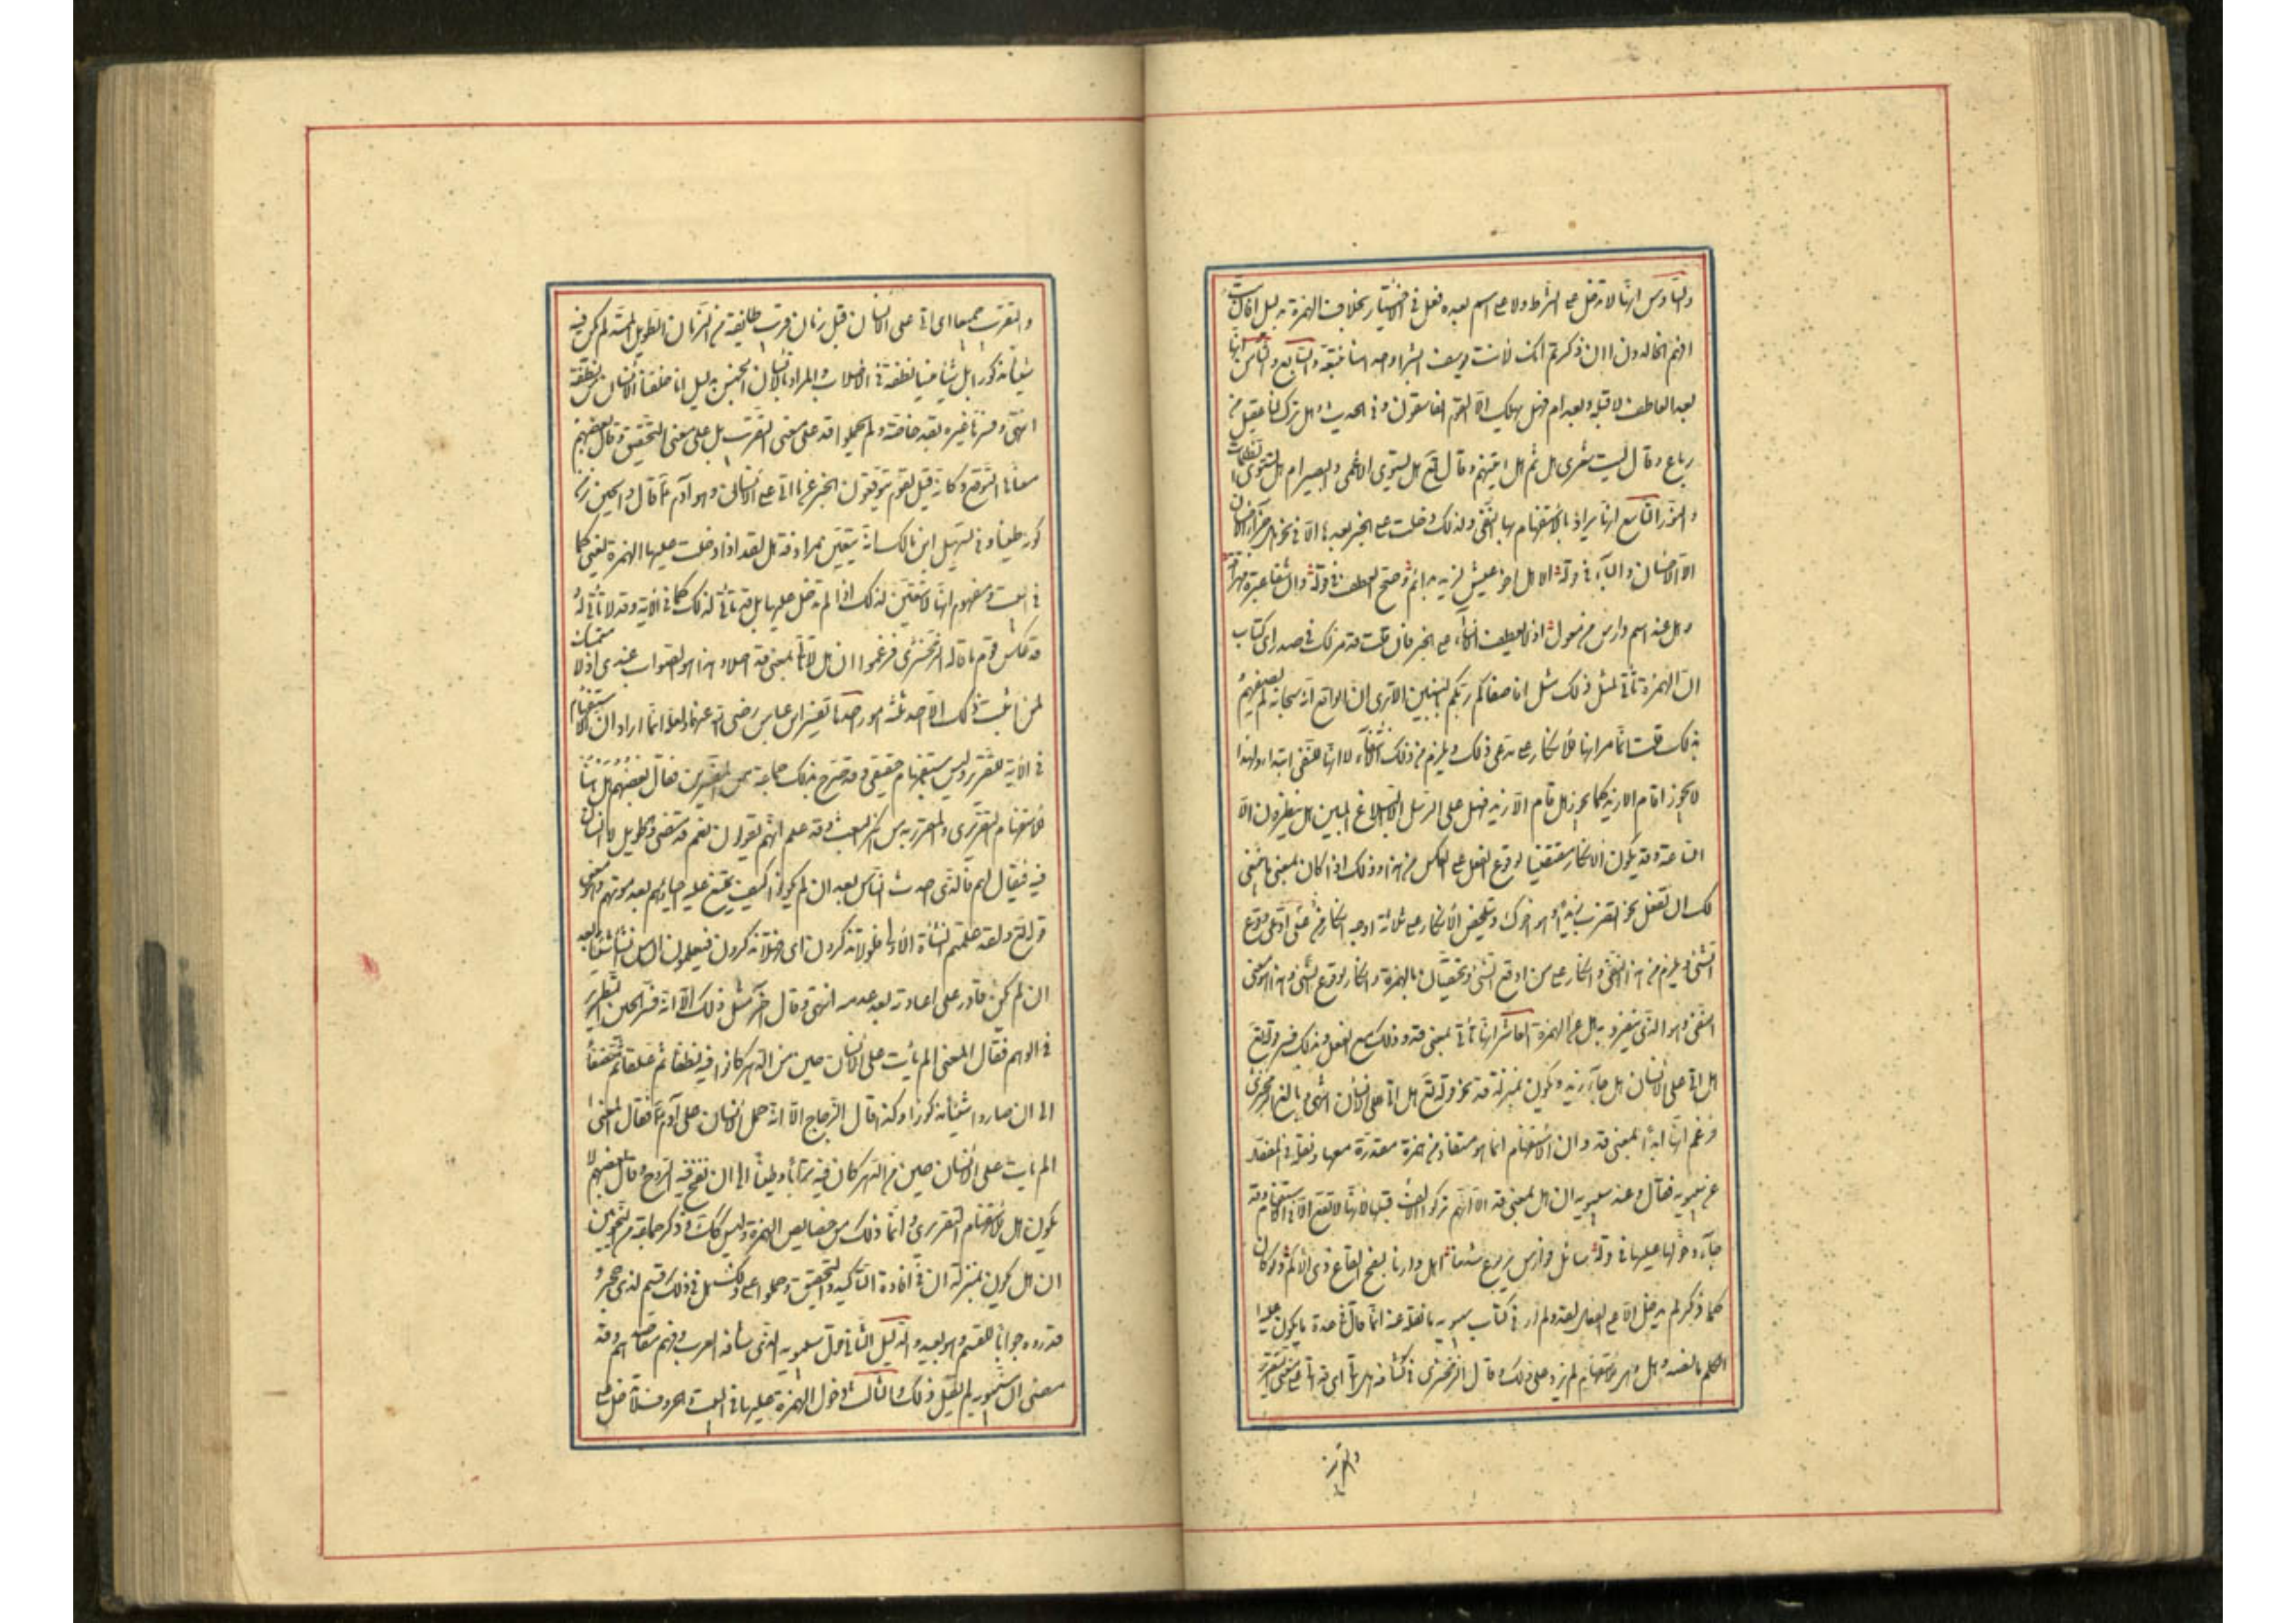 والسادس انها لا تدخل على الشرط ولا على اسم بعده فعل في الاختيار بخلاف الهمزة بدليل افان مت
افهم الخالدون اان ذكرتم ائنك لانت يوسف ابشرا منا واحدا نتبعه والسابع والثامن انها
بعد العاطف لا قبله وبعد ام فهل يهلك الا القوم الفاسقون وفي الحديث وهل ترك لنا عقيل من
رباع وقال ليت شعري هل ثم هل اتينهم وقال تع هل يستوي الاعمى والبصير ام هل تستوي الظلمات
والنور التاسع انها يراد بالاستفهام بها النفي ولذلك دخلت على الخبر بعدها الا في نحو هل جزاء الاحسان
الا الاحسان والباء في قوله الا هل اخو عيش لذيذ بدائم وصح العطف في قوله وان شفائي عبرة مهراقة
وهل عند رسم دارس من معول اذ لا يعطف الانشاء على الخبر فان قلت قد مر لك في صدر الكتاب
ان الهمزة تأتي لمثل ذلك مثل افاصفاكم ربكم بالبنين الا ترى ان الواقع انه سبحانه لم يصفهم
بذلك قلت انما مر انها للانكار على مدعي ذلك ويلزم من ذلك الانتفاء لا انها للنفي ابتداء ولهذا
لا يجوز اقام الا زيد كما يجوز هل قام الا زيد فهل على الرسل الا البلاغ المبين هل ينظرون الا
الساعة وقد يكون الانكار مقتضيا لوقوع الفعل على العكس من هذا وذلك اذا كان بمعنى ما ينبغي
لك ان تفعل نحو اتضرب زيدا وهو اخوك ويتلخص ان الانكار على ثلاثة اوجه انكار على من ادعى وقوع
الشئ ويلزم من هذا النفي وانكار على من اوقع الشئ ويختصان بالهمزة وانكار لوقوع الشئ وهذا هو معنى
النفي وهو الذي تنفرد به هل عن الهمزة العاشر انها تأتي بمعنى قد وذلك مع الفعل وبذلك فسر قوله تع
هل اتى على الانسان
وزعم انها ابدا بمعنى قد وان الاستفهام انما هو مستفاد من همزة مقدرة معها ونقله في المفصل
عن سيبويه فقال وعند سيبويه ان هل بمعنى قد الا انهم تركوا الالف قبلها لانها لا تقع الا في الاستفهام وقد
جاء دخولها عليها في قوله سائل فوارس يربوع بشدتنا اهل راونا بسفح القاع ذي الاكم ولو كان
كما ذكر لم تدخل الا على الفعل كقد ولم ار في كتاب سيبويه ما نقله عنه انما قال في عدة ما يكون عليه
الكلم ما نصه وهل وهي للاستفهام لم يزد على ذلك وقال الزمخشري في كشافه هل اتى اي قد اتى على معنى التقرير
والتقريب
والتقريب جميعا اي اتى على الانسان قبل زمان قريب طائفة من الزمان الطويل الممتد لم يكن فيه
شيئا مذكورا بل شيئا منسيا نطفة في الاصلاب والمراد بالانسان الجنس بدليل انا خلقنا الانسان من نطفة
انتهى وفسرها غيره بقد خاصة ولم يحملوا قد على معنى التقريب بل على معنى التحقيق وقال بعضهم
معناها التوقع وكانه قيل لقوم يتوقعون الخبر عما اتى على الانسان وهو آدم ع قال والحين زمن
كونه طينا وفي تسهيل ابن مالك انه يتعين مرادفة هل لقد اذا دخلت عليها الهمزة يعني كما
في البيت ومفهومه انها لا تتعين لذلك اذا لم تدخل عليها بل قد تأتي لذلك كما في الآية وقد لا تأتي له
وقد عكس قوم ما قاله الزمخشري فزعموا ان هل لا تأتي بمعنى قد اصلا وهذا هو الصواب عندي اذ لا متمسك
لمن اثبت ذلك الا احد ثلثة امور احدها تفسير ابن عباس رضي الله عنهما ولعله انما اراد ان الاستفهام
في الآية للتقرير وليس باستفهام حقيقي وقد صرح بذلك جماعة من المفسرين فقال بعضهم هل هنا
للاستفهام التقريري والمقرر به من انكر البعث وقد علم انهم يقولون نعم قد مضى دهر طويل لا انسان
فيه فيقال لهم فالذي احدث الناس بعد ان لم يكونوا كيف يمتنع عليه احياؤهم بعد موتهم وهو معنى
قوله تع ولقد علمتم النشأة الاولى فلولا تذكرون اي فهلا تذكرون فتعلمون ان من انشأ شيئا بعد
ان لم يكن قادر على اعادته بعد عدمه انتهى وقال آخر مثل ذلك الا انه فسر الحين بالتقرير
في الوهم فقال المعنى الم يأت على الانسان حين من الدهر كانوا فيه نطفا ثم علقا ثم مضغا
الى ان صاروا شيئا مذكورا وكذا قال الزجاج الا انه حمل الانسان على آدم ع فقال المعنى
الم يأت على الانسان حين من الدهر كان فيه ترابا وطينا الى ان نفخ فيه الروح وقال بعضهم لا
يكون هل للاستفهام التقريري وانما ذلك من خصايص الهمزة وليس كما قال وذكر جماعة من النحويين
ان هل يكون بمنزلة ان في افادة التأكيد والتحقيق وحملوا على ذلك هل في ذلك قسم لذي حجر و
قدروه جوابا للقسم وهو بعيد والدليل الثاني قول سيبويه الذي شافه العرب وفهم مقاصدهم وقد
مضى ان سيبويه لم يقل ذلك والثالث دخول الهمزة عليها في البيت والحرف لا يدخل على